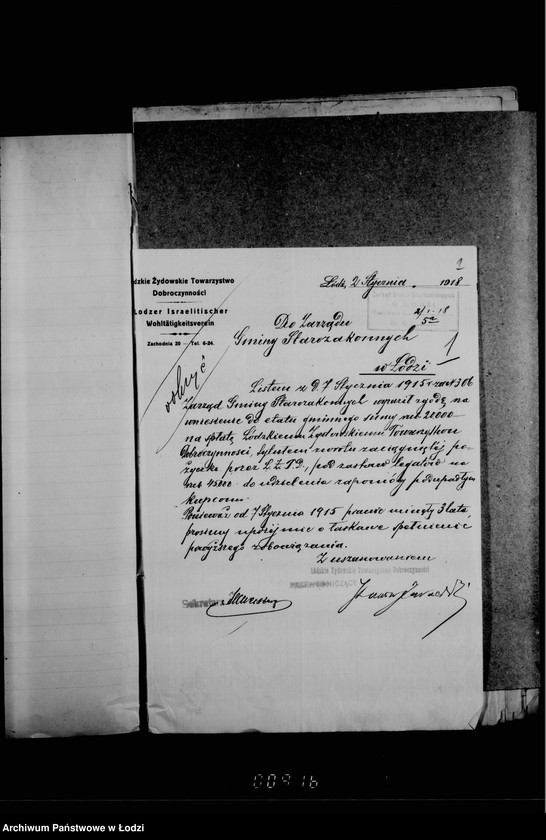 1
dzkie Żydowskie Towarzystwo
Dobroczynności
Lodzer Israelitischer
Wohltätigkeitsverein
Zachodnia 20 — Tel. 6-24.
Łódź, 2 Stycznia 1918
2/I-18
52
1
Do Zarządu
Gminy Starozakonnych
w Łodzi
Listem z d. 7 Stycznia 1915 r. za № 4306
Zarząd Gminy Starozakonnych wyraził zgodę na
wniesienie do etatu gminnego sumy rub 22000
na spłatę Łódzkiemu Żydowskiemu Towarzystwu
Dobroczynności, tytułem zwrotu zaciągniętej po-
życzki przez Ł.Ż.T.D., pod zastaw legatów na
rub 45000 - do udzielenia zapomóg podupadłym
kupcom.
Ponieważ od 7 Stycznia 1915 prawie minęły 3 lata
prosimy uprzejmie o łaskawe spełnienie
powyższego zobowiązania.
Z uszanowaniem
Łódzkie Żydowskie Towarzystwo Dobroczynności
PRZEWODNICZĄCY
Sekretarz
00916
Archiwum Państwowe w Łodzi